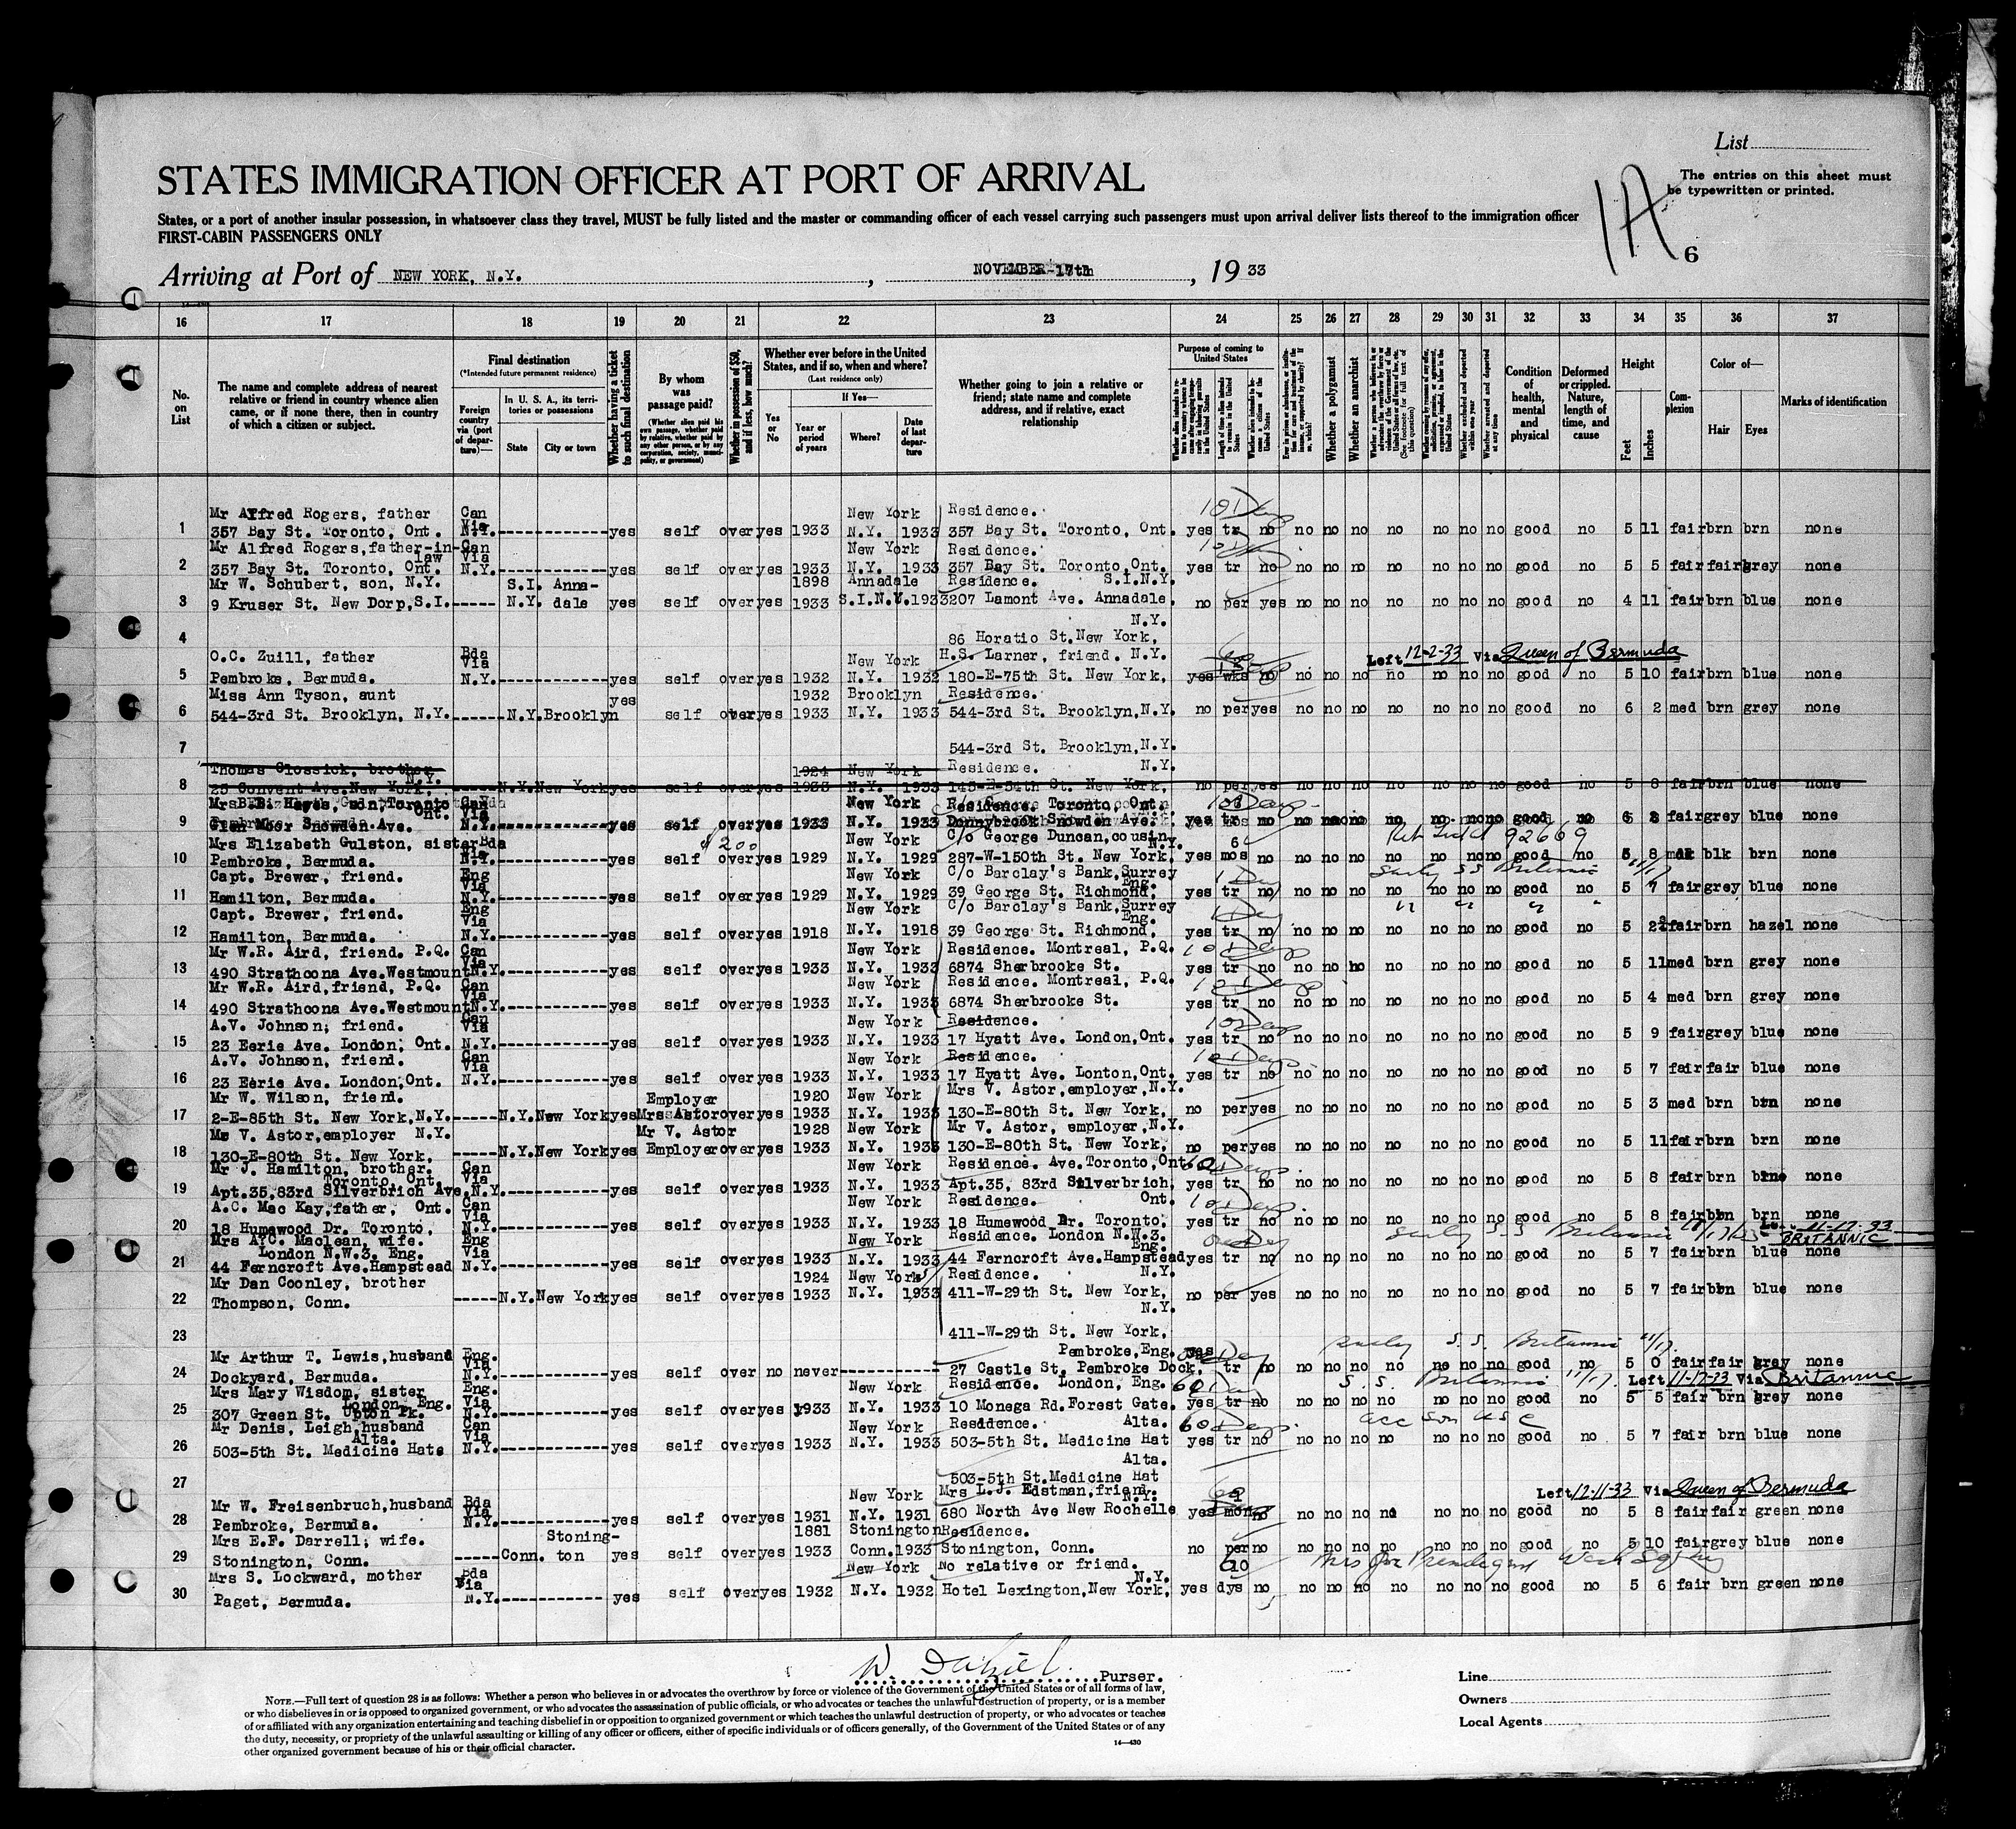 List
STATES IMMIGRATION OFFICER AT PORT OF ARRIVAL
The entries on this sheet must
be typewritten or printed.
States, or a port of another insular possession, in whatsoever class they travel, MUST be fully listed and the master or commanding officer of each vessel carrying such passengers must upon arrival deliver lists thereof to the immigration officer
FIRST-CABIN PASSENGERS ONLY
1A
6
Arriving at Port of NEW YORK, N.Y. , NOVEMBER-17th , 1933
16 17 18 19 20 21 22 23 24 25 26 27 28 29 30 31 32 33 34 35 36 37
No. on List
The name and complete address of nearest
relative or friend in country whence alien
came, or if none there, then in country
of which a citizen or subject.
Final destination
(*Intended future permanent residence)
Foreign country via (port of departure)—
In U. S. A., its territories or possessions
State City or town
Whether having a ticket to such final destination
By whom was passage paid?
(Whether alien paid his own passage, whether paid by relative, whether paid by any other person, or by any corporation, society, municipality, or government)
Whether in possession of $50, and if less, how much?
Whether ever before in the United States, and if so, when and where?
(Last residence only)
Yes or No
If Yes—
Year or period of years Where? Date of last departure
Whether going to join a relative or
friend; state name and complete
address, and if relative, exact
relationship
Purpose of coming to United States
Whether a polygamist
Whether an anarchist
(See footnote for full text of this question)
Whether excluded and deported within one year
Whether arrested and deported at any time
Condition of health, mental and physical
Deformed or crippled. Nature, length of time, and cause
Height
Feet Inches
Complexion
Color of—
Hair Eyes
Marks of identification
Mr Alfred Rogers, father Can New York Residence. 10 Days
1 357 Bay St. Toronto, Ont. Via N.Y. yes self over yes 1933 N.Y. 1933 357 Bay St. Toronto, Ont. yes tr no no no no no no no no good no 5 11 fair brn brn none
Mr Alfred Rogers, father-in-law Can Via New York Residence.
2 357 Bay St. Toronto, Ont. N.Y. yes self over yes 1933 N.Y. 1933 357 Bay St. Toronto, Ont. yes tr no no no no no no no no good no 5 5 fair fair grey none
Mr W. Schubert, son, N.Y. S.I. Anna- 1898 Annadale Residence. S.I.N.Y.
3 9 Kruser St. New Dorp, S.I. N.Y. dale yes self over yes 1933 S.I.N.Y. 1933 207 Lamont Ave. Annadale, no per yes no no no no no no no good no 4 11 fair brn blue none
N.Y.
4 86 Horatio St. New York,
O.C. Zuill, father Bda Via New York H.S. Larner, friend. N.Y. Left 12-2-33 Via Queen of Bermuda
5 Pembroke, Bermuda. N.Y. yes self over yes 1932 N.Y. 1932 180-E-75th St. New York, yes wks no no no no no no no no good no 5 10 fair brn blue none
Miss Ann Tyson, aunt yes 1932 Brooklyn Residence.
6 544-3rd St. Brooklyn, N.Y. N.Y. Brooklyn self over yes 1933 N.Y. 1933 544-3rd St. Brooklyn, N.Y. no per yes no no no no no no no good no 6 2 med brn grey none
7 544-3rd St. Brooklyn, N.Y.
Thomas Glossick, brother N.Y. 1924 New York Residence. N.Y.
8 25 Convent Ave. New York, N.Y. New York yes self over yes 1933 N.Y. 1933 145-E-54th St. New York, no per yes no no no no no no no good no 5 8 fair brn blue none
Toronto Ont. Can Via New York Residence. Toronto, Ont. 10 Days
9 Glen Moor Snowden Ave. N.Y. yes self over yes 1933 N.Y. 1933 Donnybrook Snowden Ave. yes tr no no no no no no no no good no 8 fair grey blue none
Mrs Elizabeth Gulston, sister Bda $200 New York C/o George Duncan, cousin N.Y. 92669
10 Pembroke, Bermuda. N.Y. yes self over yes 1929 N.Y. 1929 287-W-150th St. New York, yes mos no no no no no no no no good no 5 8 blk brn none
Capt. Brewer, friend. Eng Via New York C/o Barclay's Bank, Surrey Eng. 1 Day S.S. Britannic 11/17
11 Hamilton, Bermuda. N.Y. yes self over yes 1929 N.Y. 1929 39 George St. Richmond, yes tr no no no no no no no no good no 5 7 fair grey blue none
Capt. Brewer, friend. Eng Via New York C/o Barclay's Bank, Surrey Eng. 1 Day
12 Hamilton, Bermuda. N.Y. yes self over yes 1918 N.Y. 1918 39 George St. Richmond, yes tr no no no no no no no no good no 5 2½ fair brn hazel none
Mr W.R. Aird, friend. P.Q. Can Via New York Residence. Montreal, P.Q. 10 Days
13 490 Strathcona Ave. Westmount N.Y. yes self over yes 1933 N.Y. 1933 6874 Sherbrooke St. yes tr no no no no no no no no good no 5 11 med brn grey none
Mr W.R. Aird, friend, P.Q. Can Via New York Residence. Montreal, P.Q. 10 Days
14 490 Strathcona Ave. Westmount N.Y. yes self over yes 1933 N.Y. 1933 6874 Sherbrooke St. yes tr no no no no no no no no good no 5 4 med brn grey none
A.V. Johnson, friend. Can Via New York Residence. 10 Days
15 23 Eerie Ave. London, Ont. N.Y. yes self over yes 1933 N.Y. 1933 17 Hyatt Ave. London, Ont. yes tr no no no no no no no no good no 5 9 fair grey blue none
A.V. Johnson, friend. Can Via New York Residence. 10 Days
16 23 Eerie Ave. London, Ont. N.Y. yes self over yes 1933 N.Y. 1933 17 Hyatt Ave. Lonton, Ont. yes tr no no no no no no no no good no 5 7 fair fair blue none
Mr W. Wilson, friend. Employer 1920 New York Mrs V. Astor, employer, N.Y.
17 2-E-85th St. New York, N.Y. N.Y. New York yes Mrs Astor over yes 1933 N.Y. 1933 130-E-80th St. New York, no per yes no no no no no no no good no 5 3 med brn brn none
V. Astor, employer N.Y. Mr V. Astor 1928 New York Mr V. Astor, employer, N.Y.
18 130-E-80th St. New York, N.Y. New York yes Employer over yes 1933 N.Y. 1933 130-E-80th St. New York, no per yes no no no no no no no good no 5 11 fair brn brn none
Mr J. Hamilton, brother. Toronto, Ont. Can Via New York Residence. Ave. Toronto, Ont. Days
19 Apt.35, 83rd Silverbrich Ave. N.Y. yes self over yes 1933 N.Y. 1933 Apt.35, 83rd Silverbrich, yes tr no no no no no no no no good no 5 8 fair brn none
A.C. Mac Kay, father, Ont. Can Via New York Residence. Ont. 10 Days
20 18 Humewood Dr. Toronto, N.Y. yes self over yes 1933 N.Y. 1933 18 Humewood Dr. Toronto, yes tr no no no no no no no no good no 5 8 fair brn brn none
Mrs A.C. Maclean, wife. London N.W.3. Eng. Eng Via New York Residence. London N.W.3. Eng. One Day S.S. Britannic 11-17-33 BRITANNIC
21 44 Ferncroft Ave. Hampstead N.Y. yes self over yes 1933 N.Y. 1933 44 Ferncroft Ave. Hampstead yes tr no no no no no no no no good no 5 7 fair brn blue none
Mr Dan Coonley, brother 1924 New York Residence. N.Y.
22 Thompson, Conn. N.Y. New York yes self over yes 1933 N.Y. 1933 411-W-29th St. New York, no per yes no no no no no no no good no 5 7 fair brn blue none
N.Y.
23 411-W-29th St. New York,
Mr Arthur T. Lewis, husband Eng. Via Pembroke, Eng. yes S.S. Britannic 11/17
24 Dockyard, Bermuda. N.Y. yes self over no never 27 Castle St. Pembroke Dock, tr no no no no no no no no good no 5 0 fair fair grey none
Mrs Mary Wisdom, sister London, Eng. Eng. Via New York Residence. London, Eng. S.S. Britannic 11/17 Left 11-17-33 Via Britannic
25 307 Green St. Upton Pk. N.Y. yes self over yes 1933 N.Y. 1933 10 Monega Rd. Forest Gate. yes tr no no no no no no no no good no 5 5 fair brn grey none
Mr Denis, Leigh, husband Alta. Can Via New York Residence. Alta. 60 Days acc son USC
26 503-5th St. Medicine Hats N.Y. yes self over yes 1933 N.Y. 1933 503-5th St. Medicine Hat yes tr no no no no no no no no good no 5 7 fair brn blue none
Alta.
27 503-5th St. Medicine Hat
Mr W. Freisenbruch, husband Bda Via New York Mrs L.J. Edstman, friend. N.Y. Left 12-11-33 Via Queen of Bermuda
28 Pembroke, Bermuda. N.Y. yes self over yes 1931 N.Y. 1931 680 North Ave New Rochelle yes no no no no no no no good no 5 8 fair fair green none
Mrs E.F. Darrell, wife. Stoning- 1881 Stonington Residence.
29 Stonington, Conn. Conn. ton yes self over yes 1933 Conn. 1933 Stonington, Conn. no per no no no no no no no no good no 5 10 fair grey blue none
Mrs S. Lockward, mother Bda Via New York No relative or friend. N.Y. 10
30 Paget, Bermuda. N.Y. yes self over yes 1932 N.Y. 1932 Hotel Lexington, New York, yes dys no no no no no no no no good no 5 6 fair brn green none
Purser.
Line
Owners
Local Agents
NOTE.—Full text of question 28 is as follows: Whether a person who believes in or advocates the overthrow by force or violence of the Government of the United States or of all forms of law,
or who disbelieves in or is opposed to organized government, or who advocates the assassination of public officials, or who advocates or teaches the unlawful destruction of property, or is a member
of or affiliated with any organization entertaining and teaching disbelief in or opposition to organized government or which teaches the unlawful destruction of property, or who advocates or teaches
the duty, necessity, or propriety of the unlawful assaulting or killing of any officer or officers, either of specific individuals or of officers generally, of the Government of the United States or of any
other organized government because of his or their official character.
14—430